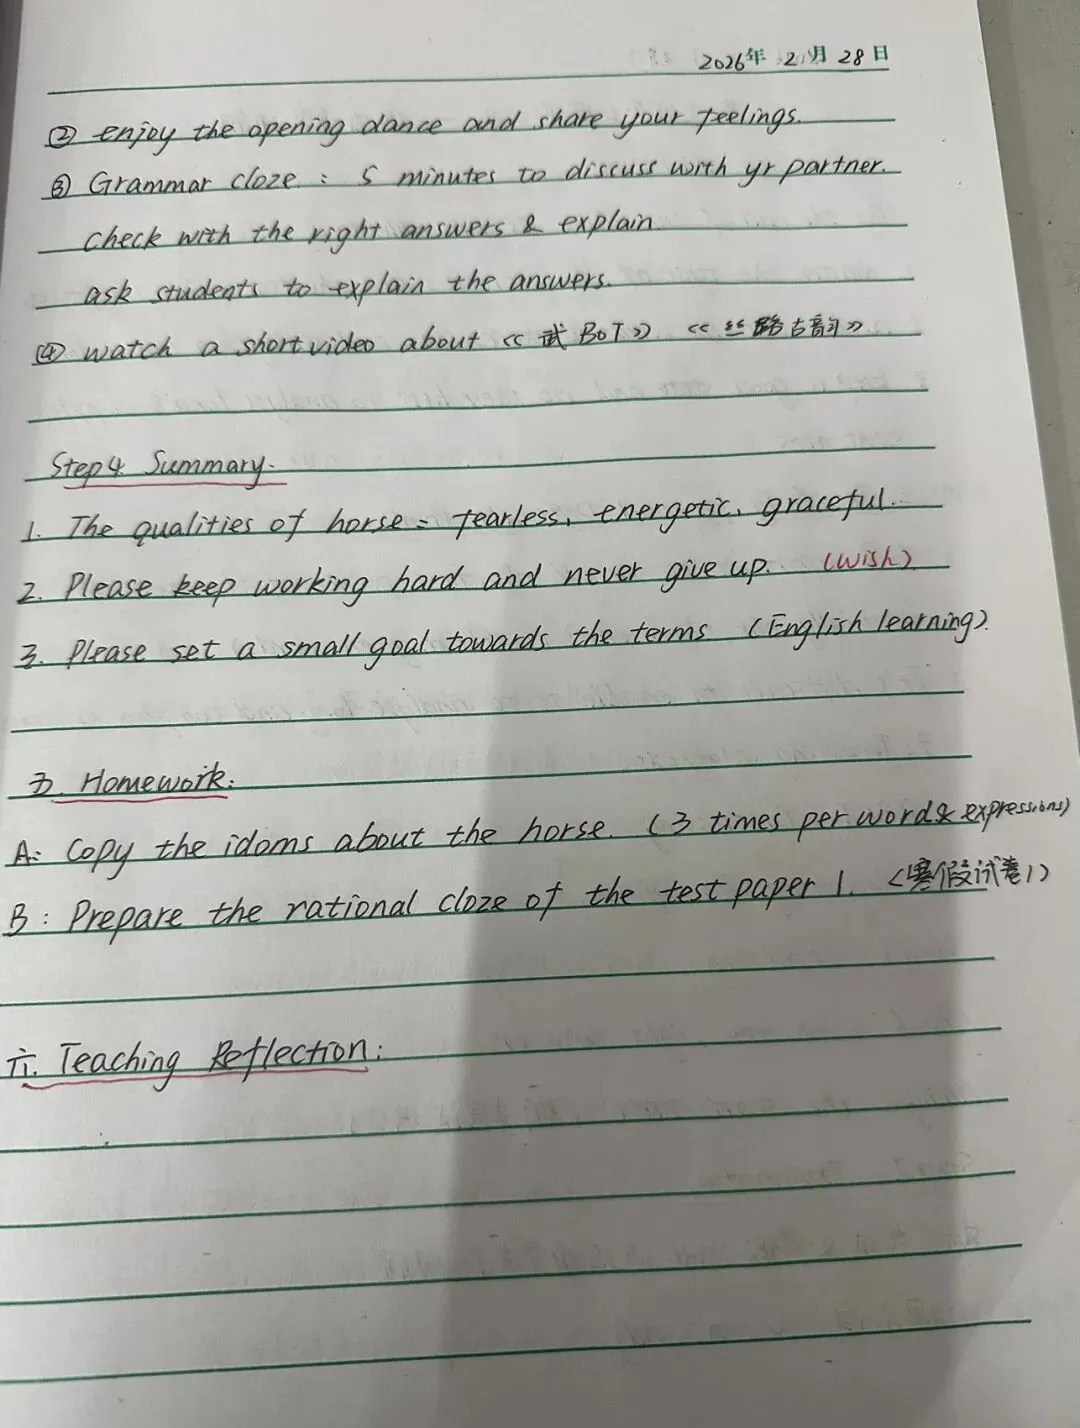 2026年 2月 28日
② enjoy the opening dance and share your feelings.
③ Grammar cloze : 5 minutes to discuss with yr partner.
check with the right answers & explain
ask students to explain the answers.
④ watch a short video about 《武BOT》 《丝路古韵》
Step 4. Summary.
1. The qualities of horse = fearless, energetic, graceful.
2. Please keep working hard and never give up. (wish)
3. Please set a small goal towards the terms (English learning).
五. Homework:
A: Copy the idoms about the horse. (3 times per word & expressions)
B: Prepare the rational cloze of the test paper 1. (寒假试卷1)
六. Teaching Reflection: